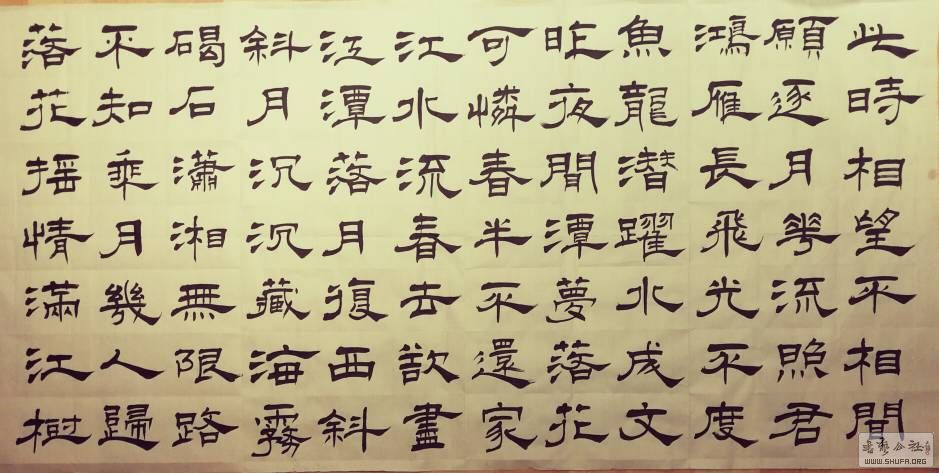 此時相望不相聞
願逐月華流照君
鴻雁長飛光不度
魚龍潛躍水成文
昨夜閒潭夢落花
可憐春半不還家
江水流春去欲盡
江潭落月復西斜
斜月沉沉藏海霧
碣石瀟湘無限路
不知乘月幾人歸
落花搖情滿江樹
WWW.SHUFA.ORG